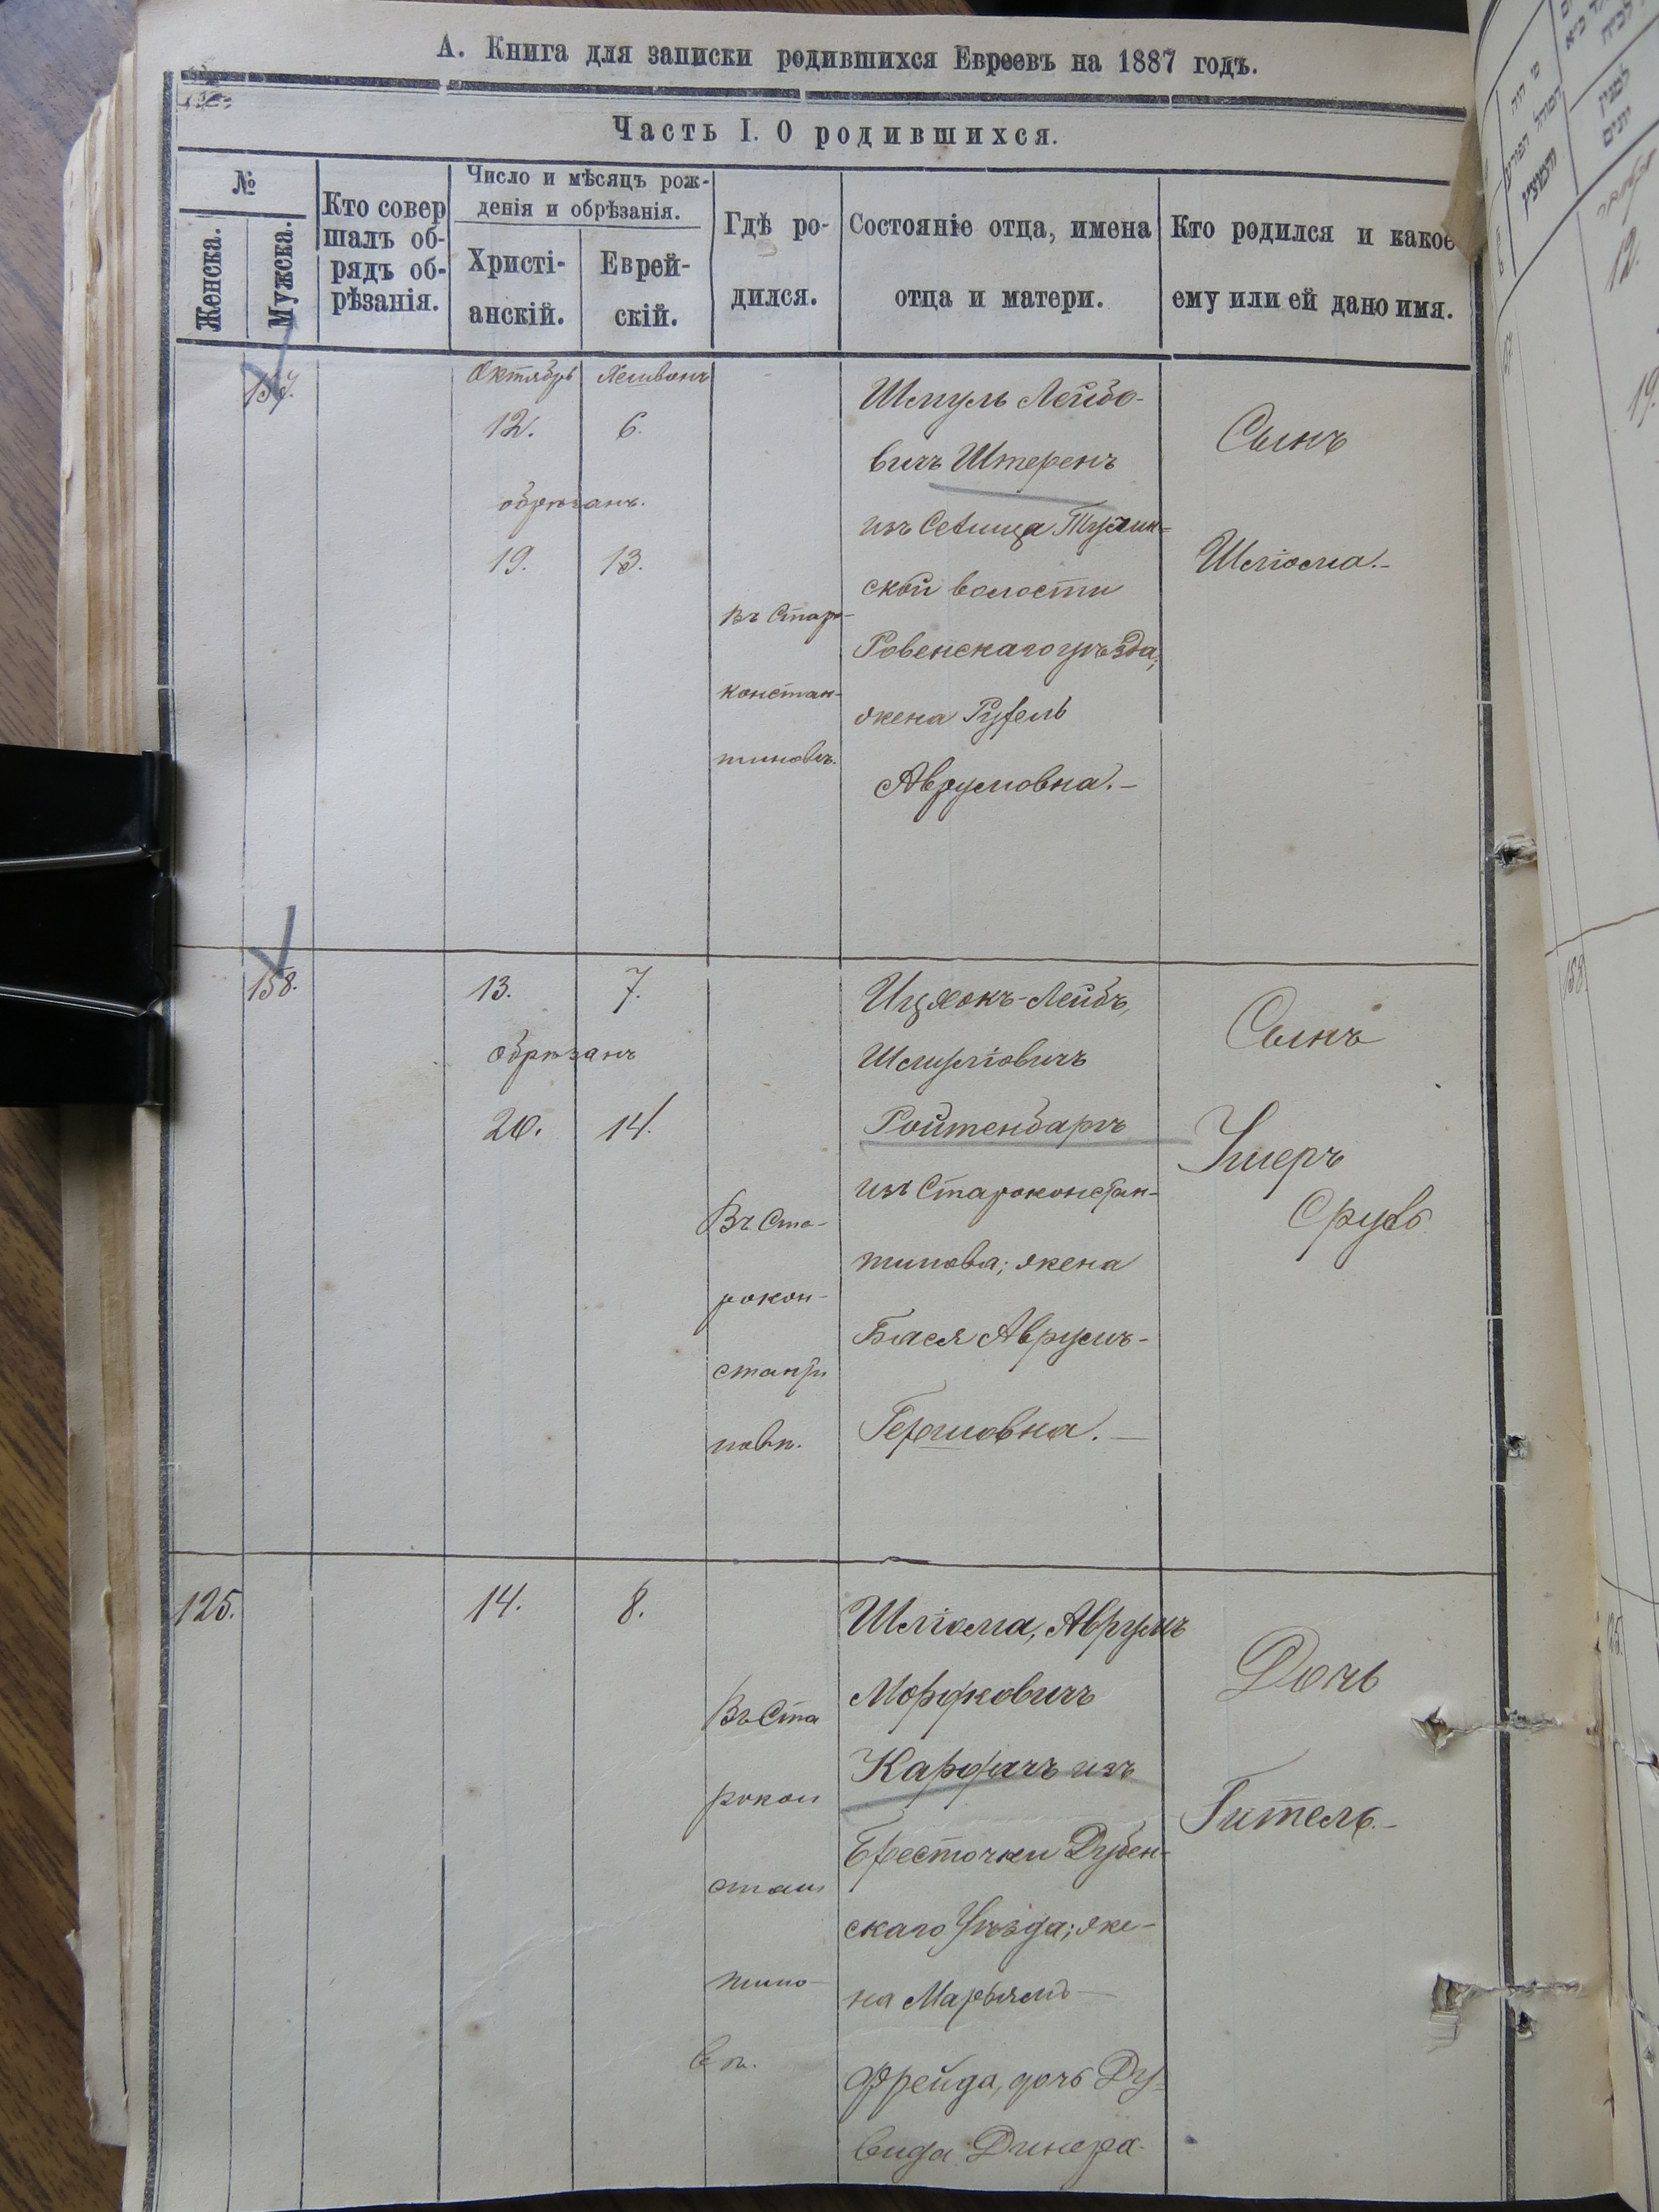 А. Книга для записки родившихся Евреевъ на 1887 годъ.
Часть I. О родившихся.
№
Женска.
Мужска.
Кто совер
шалъ об-
рядъ об-
рѣзанія.
Число и мѣсяцъ рож-
денія и обрѣзанія.
Христі-
анскій.
Еврей-
скій.
Гдѣ ро-
дился.
Состояніе отца, имена
отца и матери.
Кто родился и какое
ему или ей дано имя.
157.
Октябрь
12.
обрѣзанъ.
19.
Хешвонъ
6.
13.
въ Старо-
констан-
тиновѣ.
Шмуль Лейбо-
вичъ Штеренъ
изъ Селища Тучин-
ской волости
Ровенскаго уѣзда,
жена Рухель
Аврумовна.-
Сынъ
Шліома.-
158.
13.
обрѣзанъ
20.
7.
14.
Въ Ста-
рокон-
станти
новѣ.
Ицхокъ-Лейбъ,
Шмуліовичъ
Ройтенбаргъ
изъ Староконстан-
тинова; жена
Бася Аврумъ-
Гершовна.-
Сынъ
Ушеръ
Сруль
125.
14.
8.
Въ Ста
рокон
стан
тино-
вѣ.
Шліома, Аврумъ
Мордковичъ
изъ
Бересточки Дубен-
скаго Уѣзда; же-
на Марьямъ-
Фрейда, дочь Ду-
вида Динера.
Дочь
Гитель.-
158
12.
19.